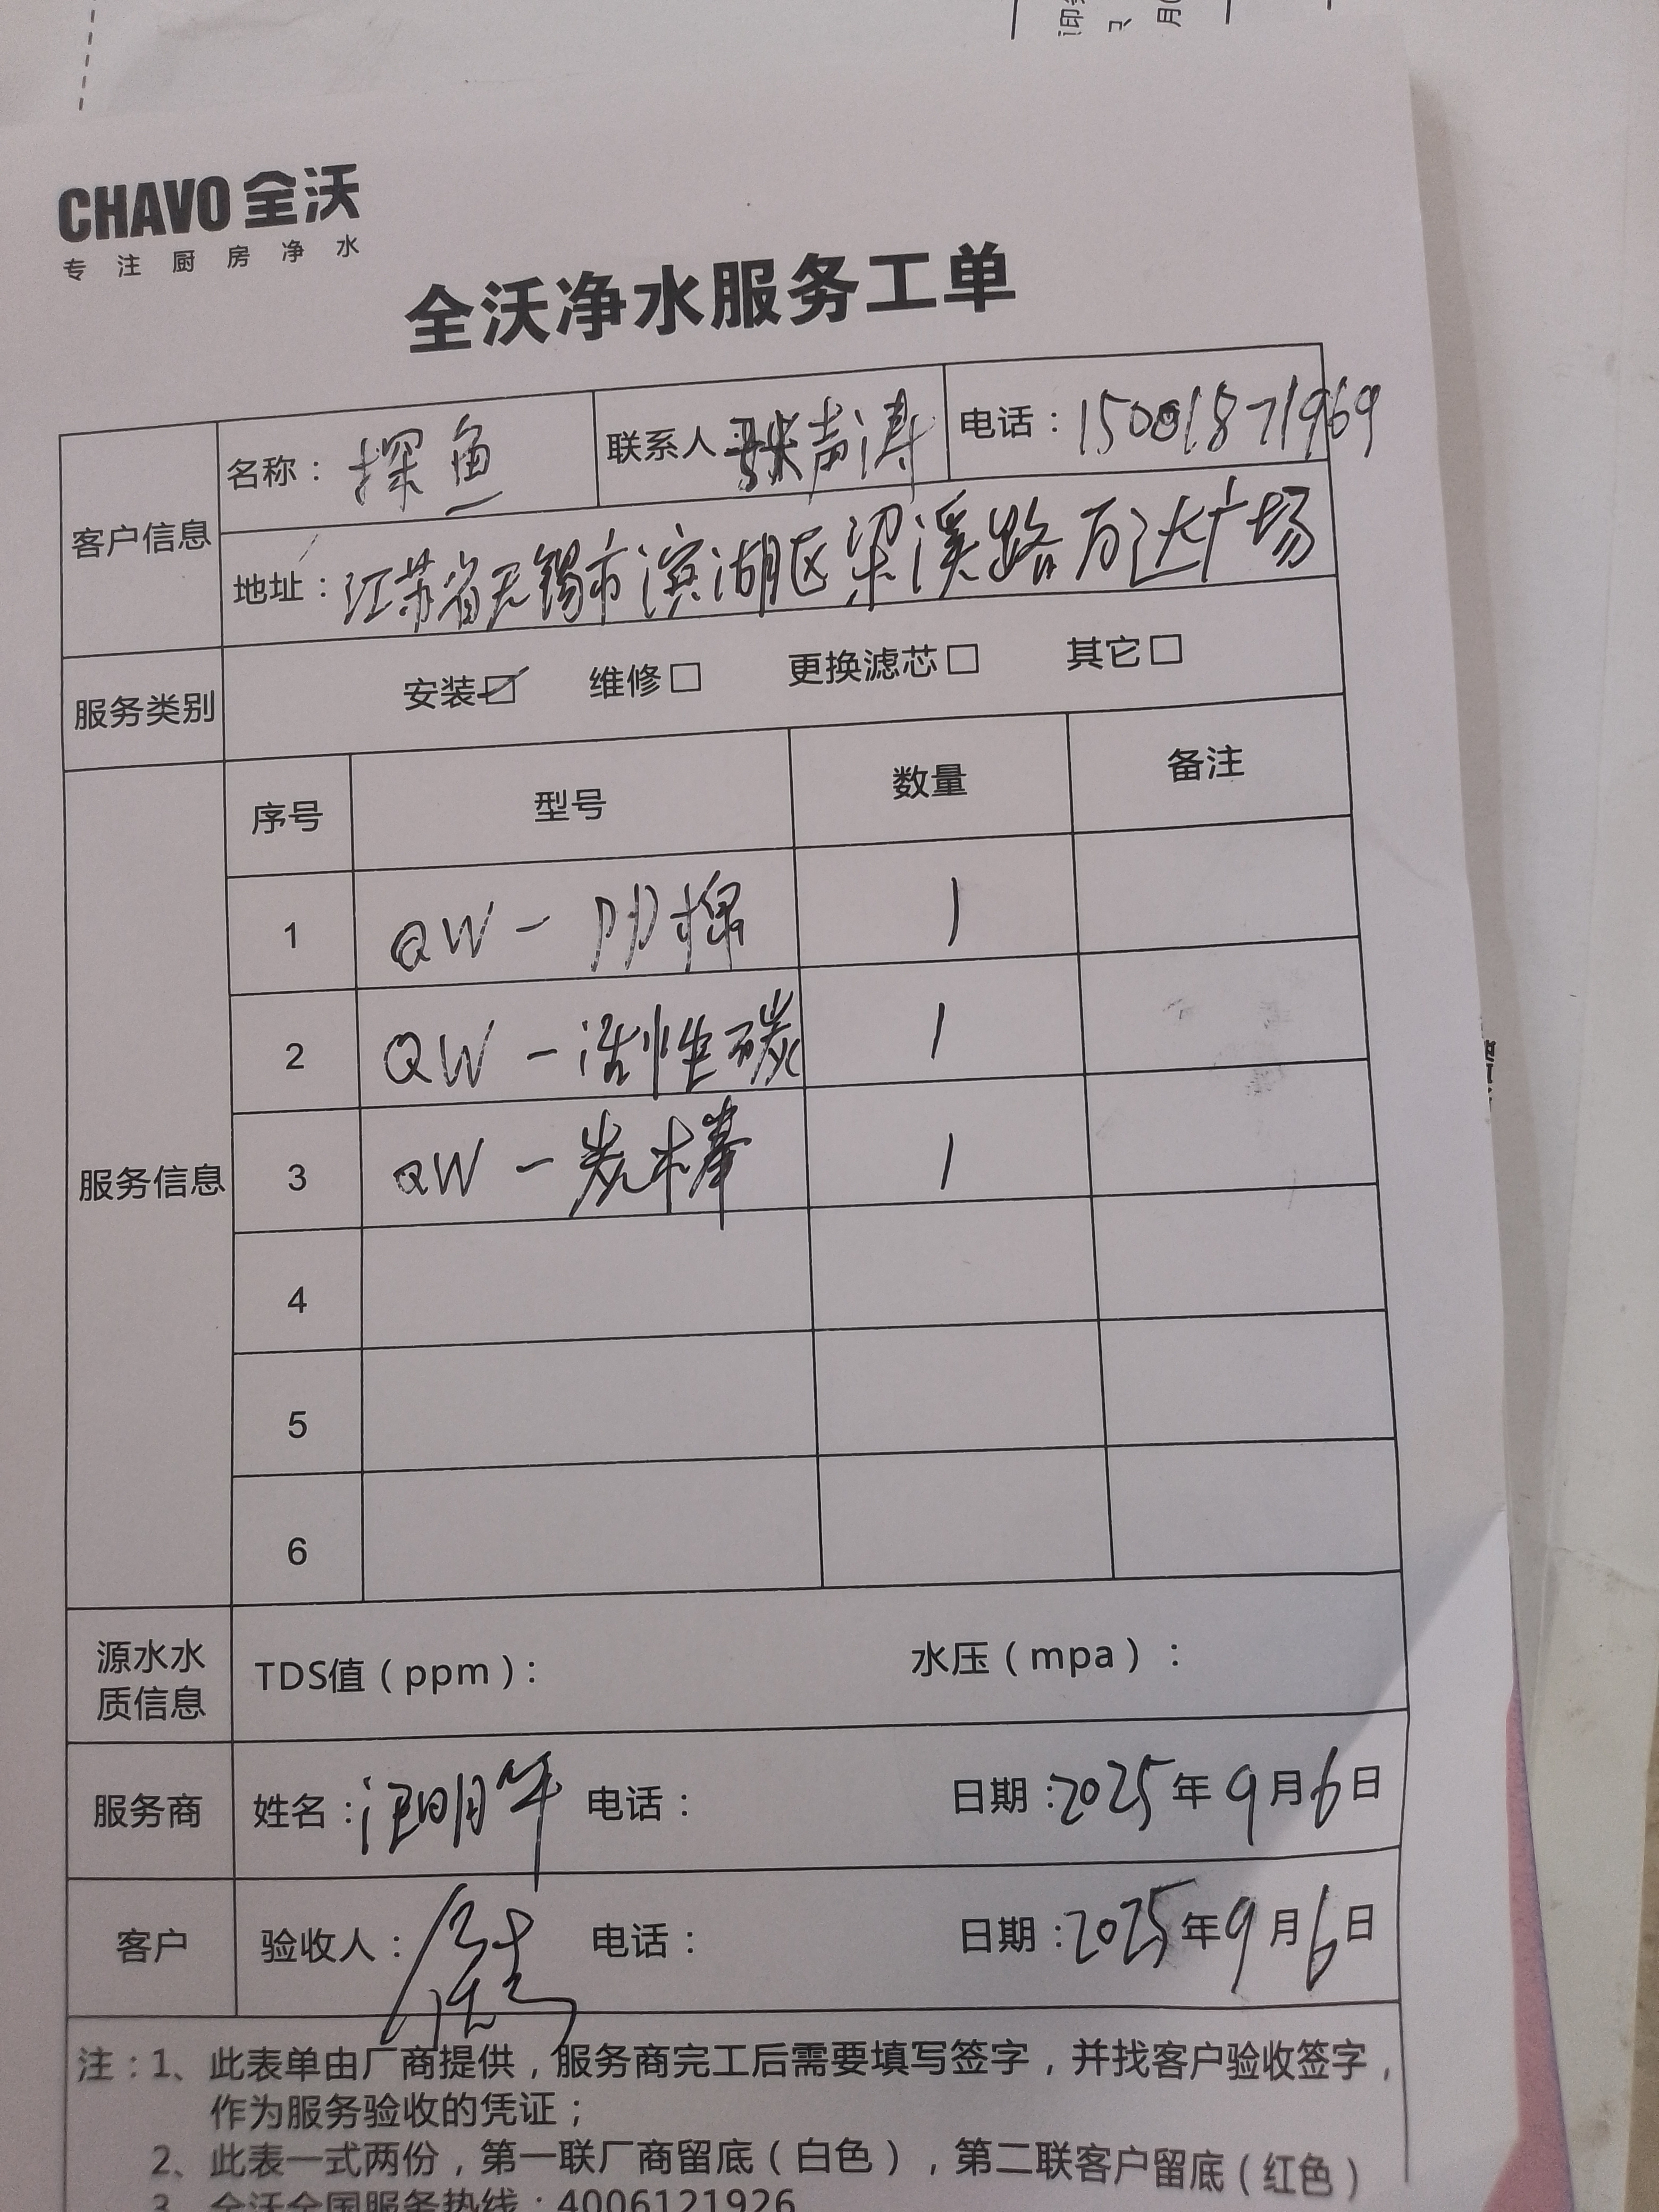 CHAVO 全沃
专注厨房净水
全沃净水服务工单
客户信息
名称：探鱼
联系人：张声涛
电话：15001871969
地址：江苏省无锡市滨湖区梁溪路万达广场
服务类别
安装☑ 维修□ 更换滤芯□ 其它□
服务信息
序号 型号 数量 备注
1 QW－PP棉 1
2 QW－活性碳 1
3 QW－炭棒 1
4
5
6
源水水质信息
TDS值（ppm）： 水压（mpa）：
服务商
姓名：汪明华 电话： 日期：2025年9月6日
客户
验收人： 电话： 日期：2025年9月6日
注：1、此表单由厂商提供，服务商完工后需要填写签字，并找客户验收签字，
作为服务验收的凭证；
2、此表一式两份，第一联厂商留底（白色），第二联客户留底（红色）
3、全沃全国服务热线：4006121926